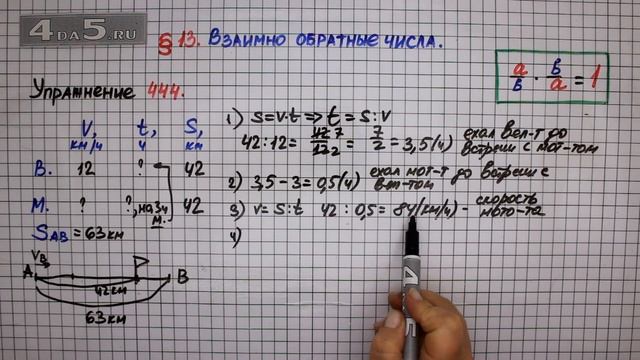 4DA5.RU
§ 13. Взаимно обратные числа.
a/b · b/a = 1
Упражнение 444.
V, км/ч t, ч S, км
В. 12 ? 42
М. ? ?, на 3ч м. 42
S AB = 63 км
V В
A B
42 км
63 км
1) S=V·t => t = S:V
42:12 = 42 7/12 2 = 7/2 = 3,5(ч) ехал вел-т до встречи с мот-том
2) 3,5 - 3 = 0,5(ч) ехал мот-т до встречи с вел-том
3) V = S:t 42 : 0,5 = 84(км/ч) - скорость мото-та
4)